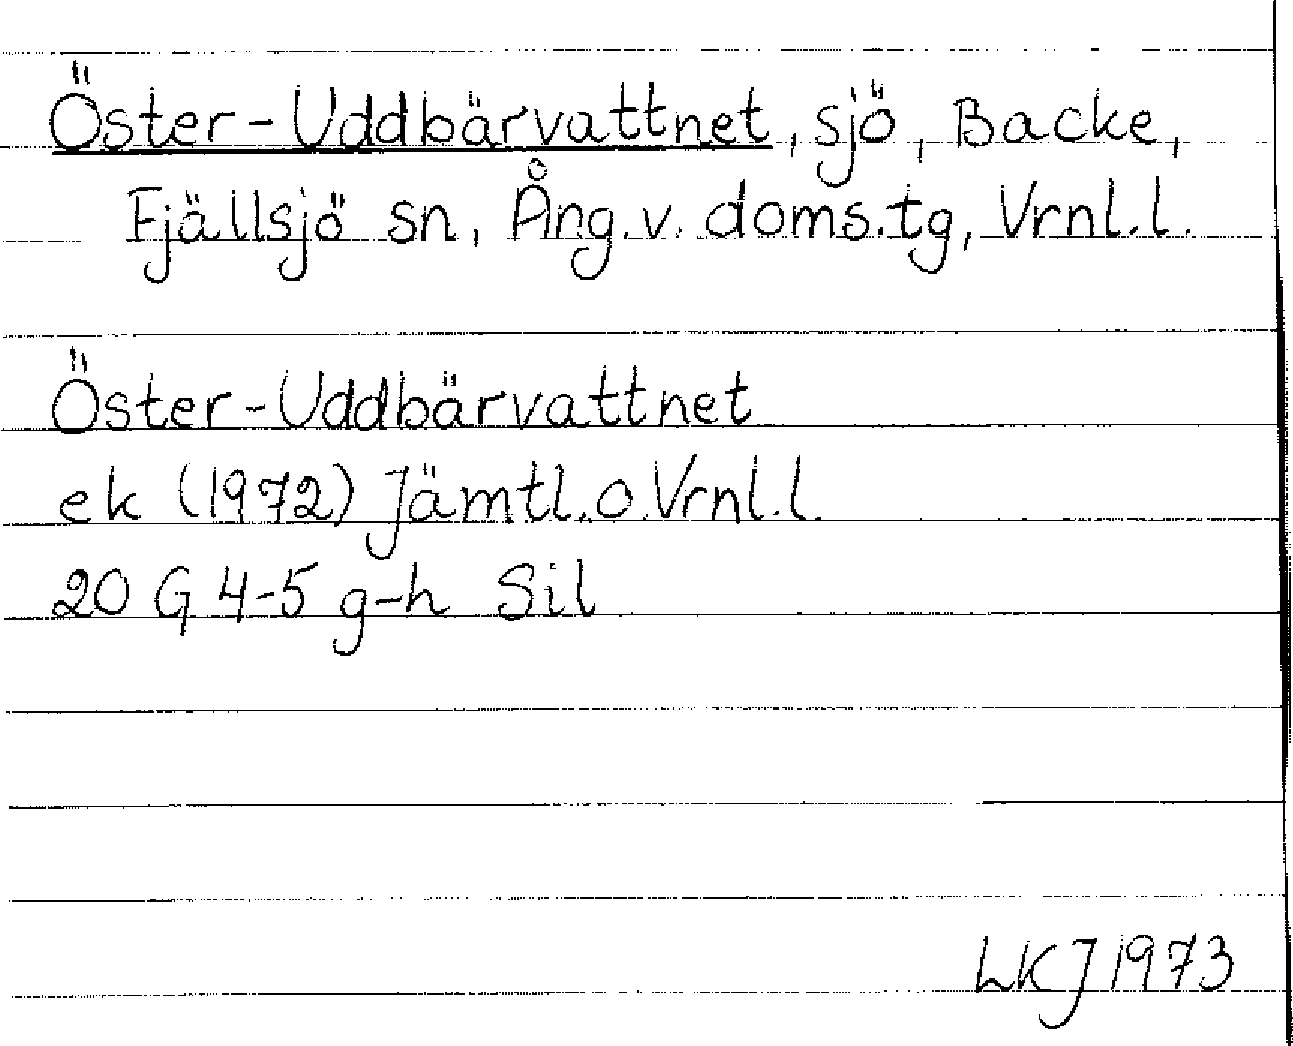 Öster-Uddbärvattnet, sjö, Backe,
Fjällsjö sn, Ång.v. doms.tg, Vrnl.l.
Öster-Uddbärvattnet
ek (1972) Jämtl.o.Vrnl.l.
20 G 4-5 g-h Sil
LKJ 1973